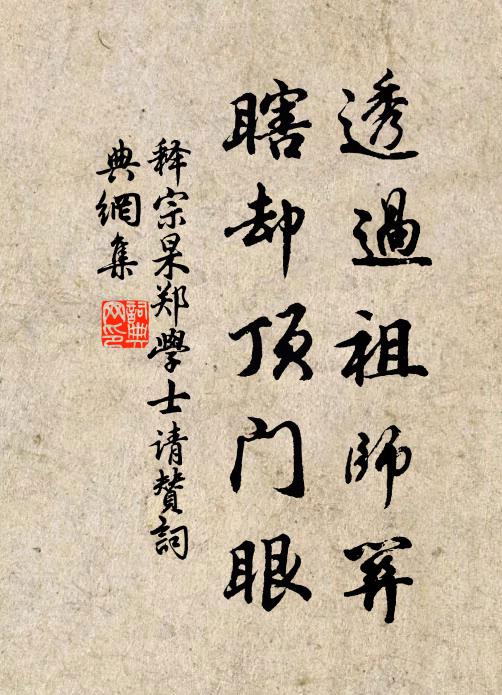 透過祖師關
瞎却顶门眼
释宗杲郑學士请贊詞
典網集
詞典网印